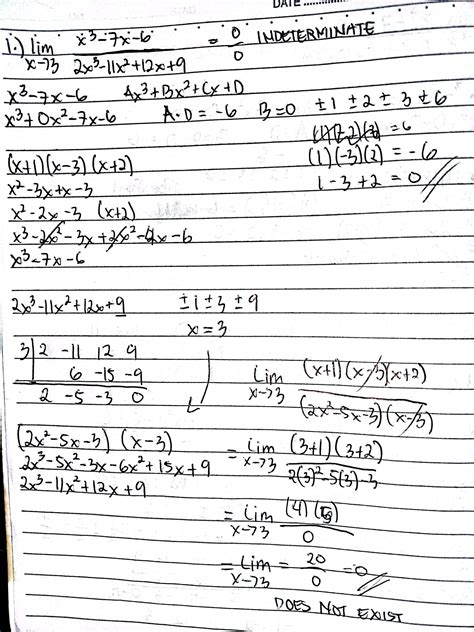 DATE
1.) lim x→3 x³-7x-6 / 2x³-11x²+12x+9 = 0/0 INDETERMINATE
x³-7x-6 Ax³+Bx²+Cx+D
x³+0x²-7x-6 A·D=-6 B=0 ±1 ±2 ±3 ±6
(1)(-2)(3)=6
(x+1)(x-3)(x+2) (1)(-3)(2)=-6
x²-3x+x-3 1-3+2=0
x²-2x-3 (x+2)
x³-2x²-3x+2x²-4x-6
x³-7x-6
2x³-11x²+12x+9 ±1 ±3 ±9
x=3
3 | 2 -11 12 9
6 -15 -9
2 -5 -3 0
Lim x→3 (x+1)(x-3)(x+2) / (2x²-5x-3)(x-3)
(2x²-5x-3)(x-3)
2x³-5x²-3x-6x²+15x+9
2x³-11x²+12x+9
= Lim x→3 (3+1)(3+2) / 2(3)²-5(3)-3
= Lim x→3 (4)(5) / 0
= Lim x→3 = 20/0 = 0
DOES NOT EXIST